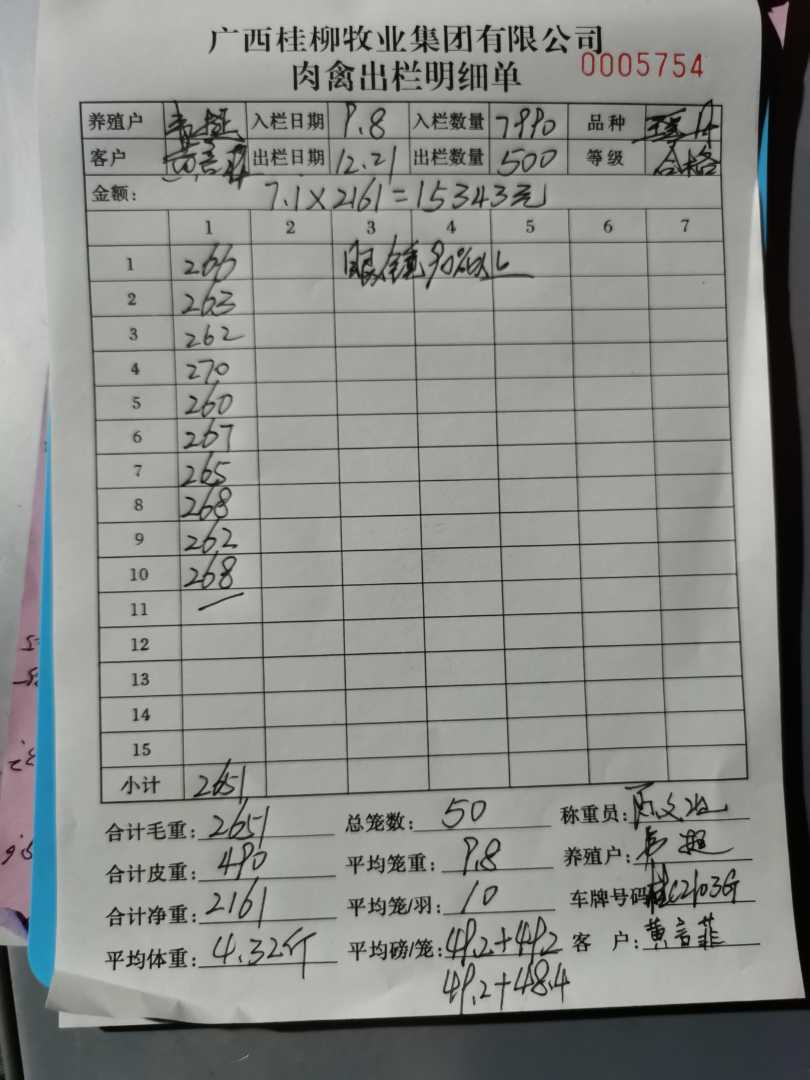 广西桂柳牧业集团有限公司
肉禽出栏明细单 0005754
养殖户 韦挺 入栏日期 9.8 入栏数量 7990 品种
客户 黄言菲 出栏日期 12.21 出栏数量 500 等级 合格
金额: 7.1×2161=15343元
1 2 3 4 5 6 7
1 266 眼镜90%以上
2 263
3 262
4 270
5 260
6 267
7 265
8 268
9 262
10 268
11
12
13
14
15
小计 2651
合计毛重: 2651 总笼数: 50 称重员:
合计皮重: 490 平均笼重: 9.8 养殖户:
合计净重: 2161 平均笼/羽: 10 车牌号码 桂C2103G
平均体重: 4.32斤 平均磅/笼: 49.2+49.2 客 户: 黄言菲
49.2+48.4